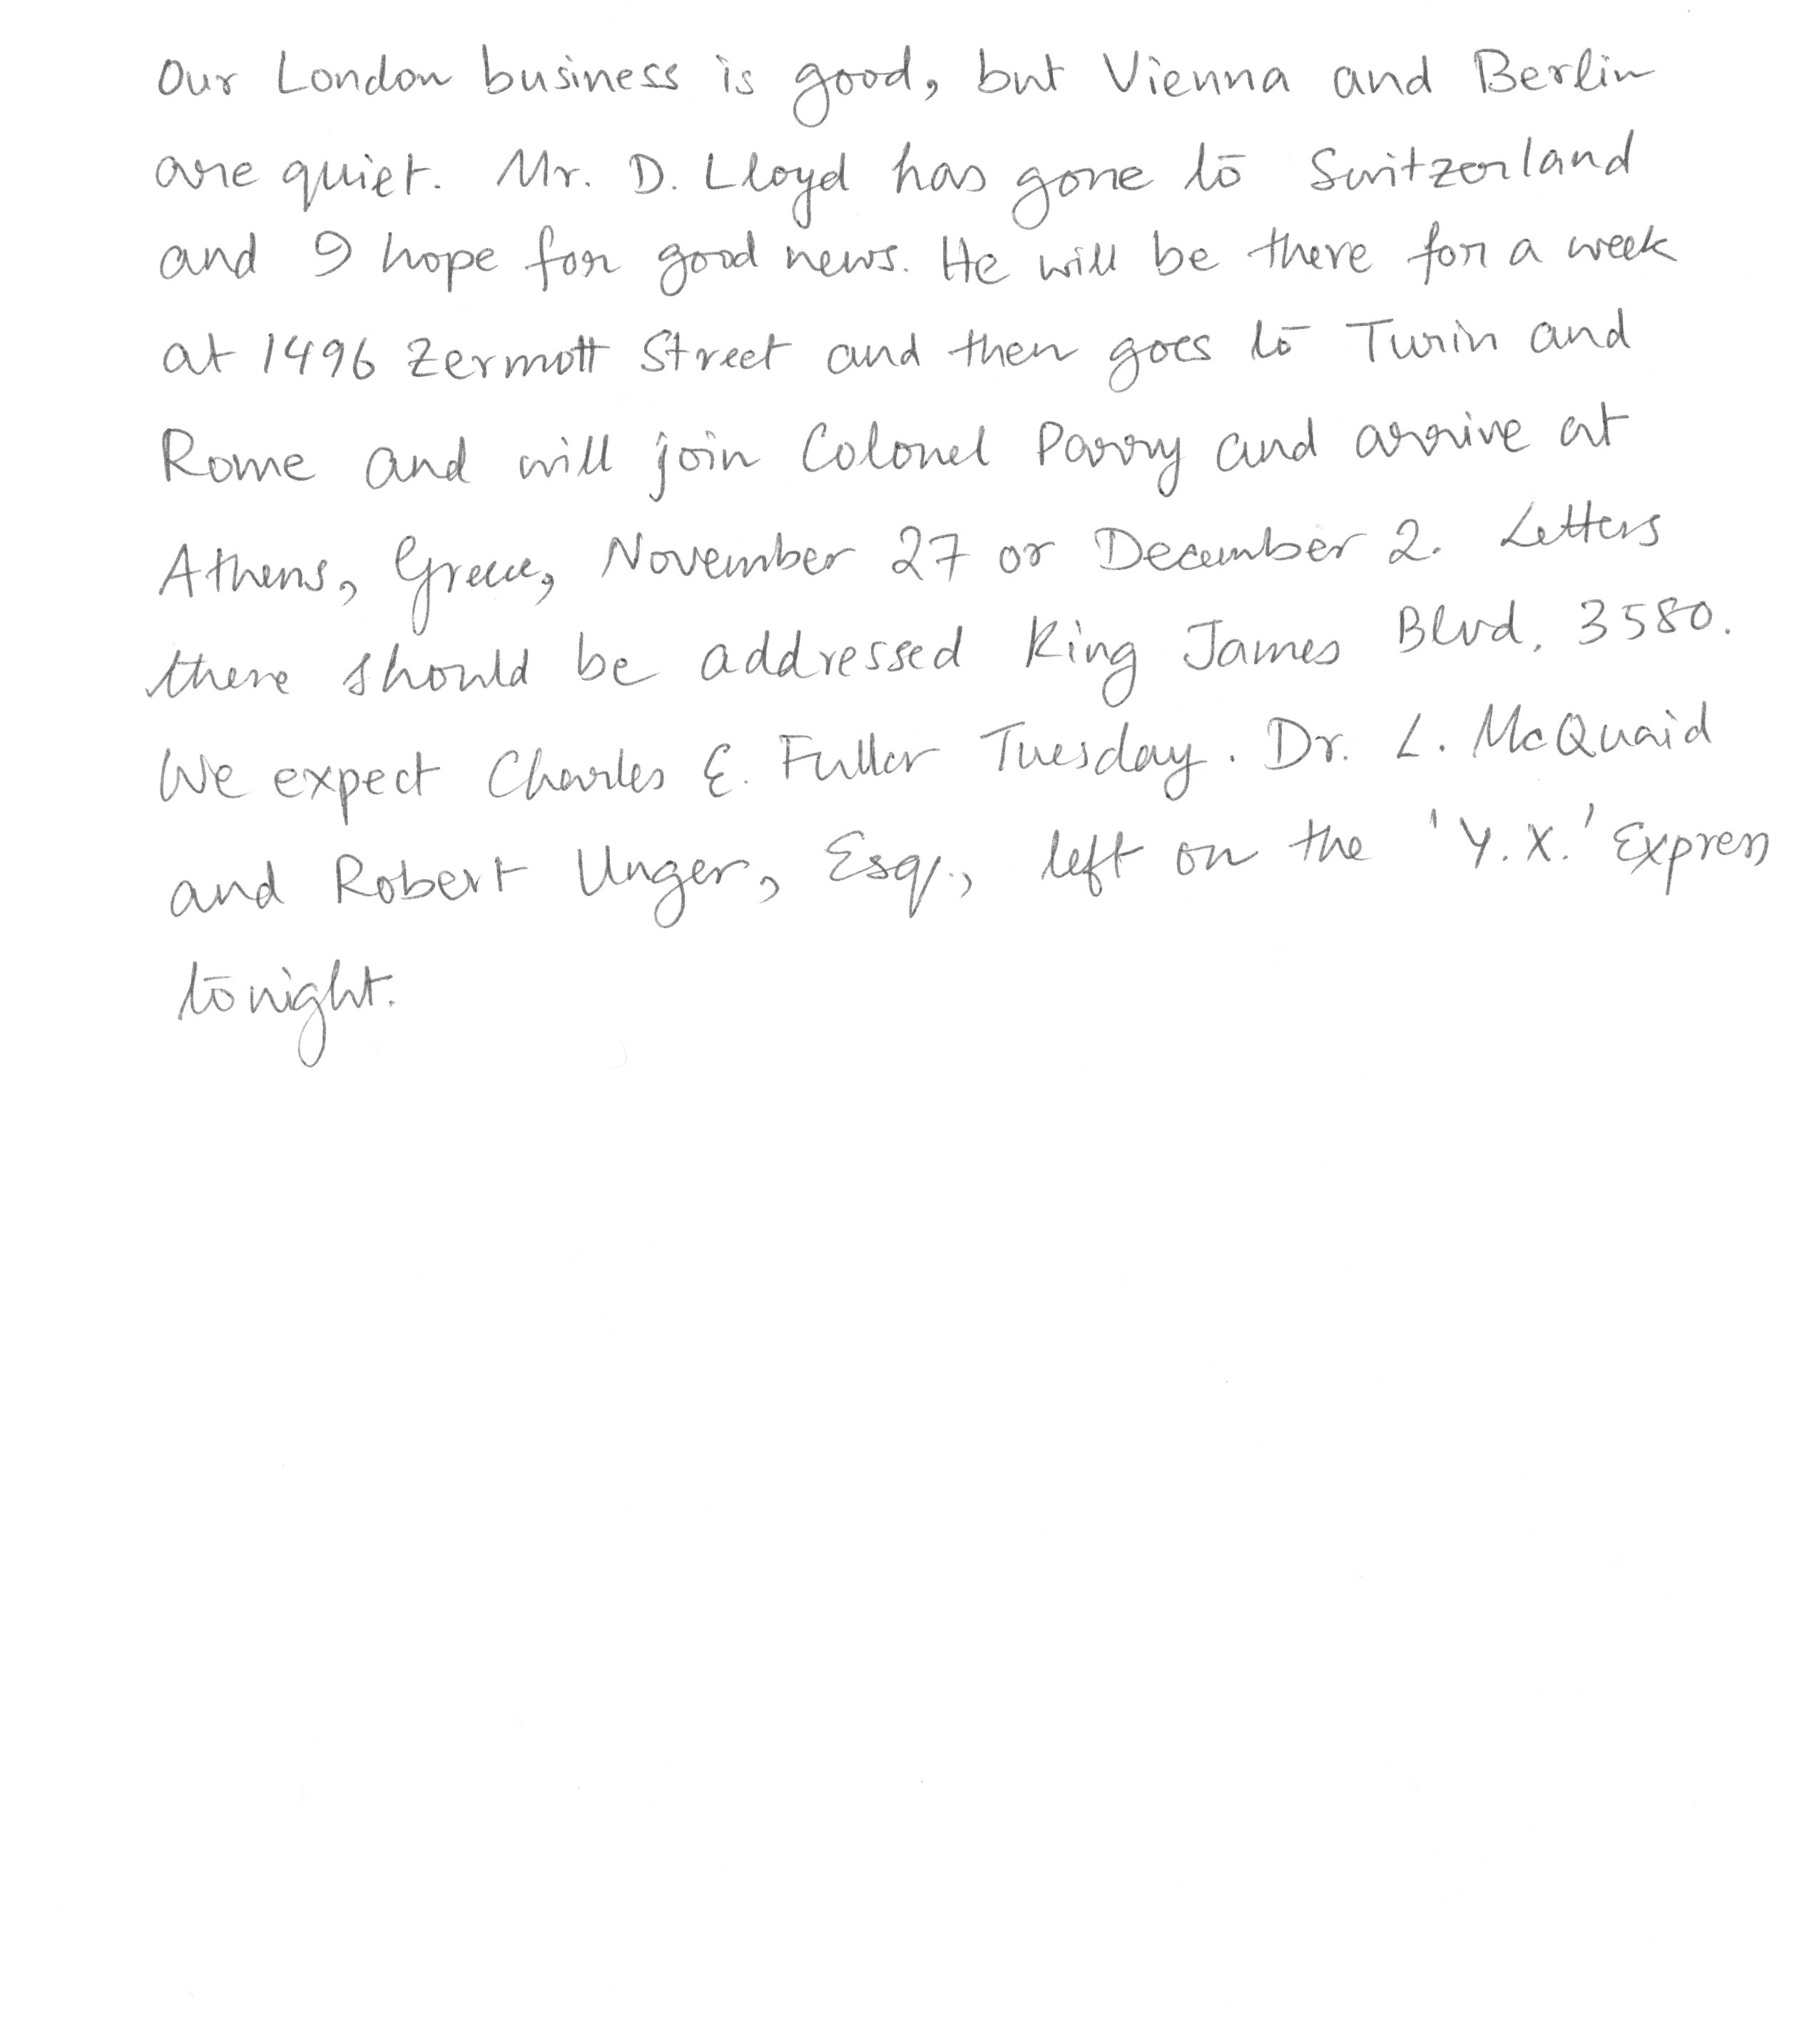 Our London business is good, but Vienna and Berlin
are quiet. Mr. D. Lloyd has gone to Switzerland
and I hope for good news. He will be there for a week
at 1496 Zermott Street and then goes to Turin and
Rome and will join Colonel Parry and arrive at
Athens, Greece, November 27 or December 2. Letters
there should be addressed King James Blvd. 3580.
We expect Charles E. Fuller Tuesday. Dr. L. McQuaid
and Robert Unger, Esq., left on the 'Y.X.' Express
tonight.